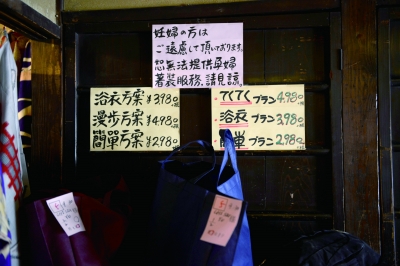 妊婦の方は
ご遠慮して頂いております。
恕無法提供孕婦
著裝服務,請見諒。
浴衣方案 ¥3,980
漫步方案 ¥4,980
簡單方案 ¥2,980
てくてくプラン 4,980
浴衣プラン 3,980
簡単プラン 2,980